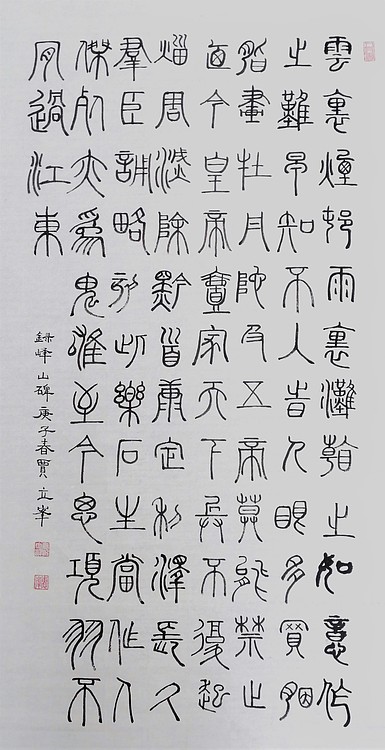 雲裏煙邨雨裏灘看之如意作
之難早知不入旹人眼多買胭
脂畫牡丹陀及五帝莫能禁止
迺今皇帝壹家天下兵不復起
災害滅除黔首康定利澤長久
羣臣誦略刻此樂石生當作人
傑死亦爲鬼雄至今思項羽不
肎過江東
録峄山碑庚子春賈立峯